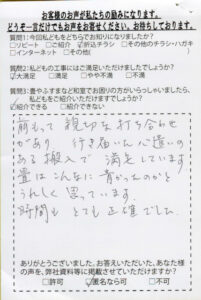 お客様のお声が私たちの励みになります。
どうぞ一言だけでもお声をお寄せください。お待ちしております。
質問1:今回私どもをどちらでお知りになりましたか?
□リピート □ご紹介 ☑折込チラシ □その他のチラシ・ハガキ
□インターネット □その他(
質問2:私どもの工事にはご満足いただけましたでしょうか?
☑大満足 □満足 □やや不満 □不満
質問3:畳やふすまなど和室でお困りの方がいらっしゃいましたら、
私どもをご紹介いただけますでしょうか?
□紹介できる □紹介しない
前もって親切な打ち合わせ
があり 行き届いた心遣いの
ある搬入で 満足しています
畳はこんなに青かったのかと
うれしく思っています。
時間も とても正確でした。
ありがとうございました。お答えいただいた、あなた様
の声を、弊社資料等に掲載させていただけますか?
□許可 ☑匿名なら可 □不可